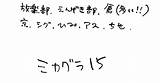 放楽部、えんげき部、倉(多い!!)
京、シグ、ひみ、アス、ちせ
ミカグラ15